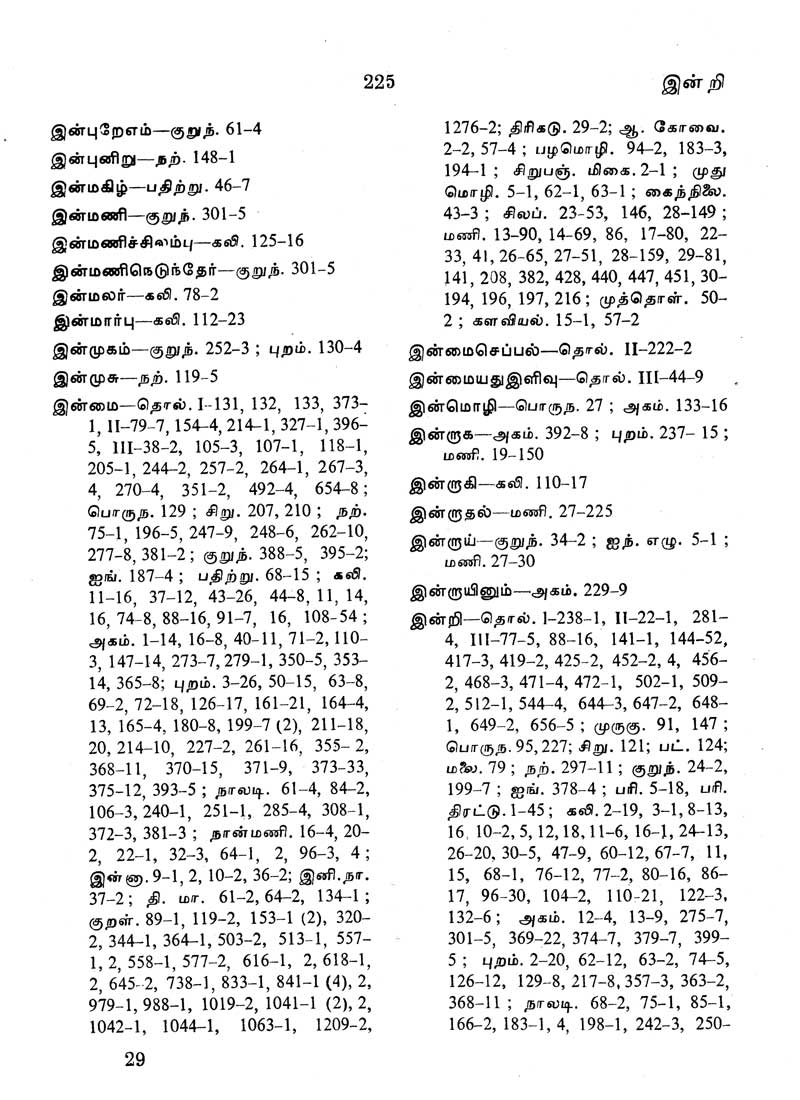 225
இன்றி
இன்புறேஎம்—குறுந். 61–4
இன்புனிறு—நற். 148–1
இன்மகிழ்—பதிற்று. 46–7
இன்மணி—குறுந். 301–5
இன்மணிச்சிலம்பு—கலி. 125–16
இன்மணிநெடுந்தேர்—குறுந். 301–5
இன்மலர்—கலி. 78–2
இன்மார்பு—கலி. 112–23
இன்முகம்—குறுந். 252–3 ; புறம். 130–4
இன்முசு—நற். 119–5
இன்மை—தொல். I–131, 132, 133, 373–
1, II–79–7, 154–4, 214–1, 327–1, 396–
5, III–38–2, 105–3, 107–1, 118–1,
205–1, 244–2, 257–2, 264–1, 267–3,
4, 270–4, 351–2, 492–4, 654–8 ;
பொருந. 129 ; சிறு. 207, 210 ; நற்.
75–1, 196–5, 247–9, 248–6, 262–10,
277–8, 381–2 ; குறுந். 388–5, 395–2;
ஐங். 187–4 ; பதிற்று. 68–15 ; கலி.
11–16, 37–12, 43–26, 44–8, 11, 14,
16, 74–8, 88–16, 91–7, 16, 108–54 ;
அகம். 1–14, 16–8, 40–11, 71–2, 110–
3, 147–14, 273–7, 279–1, 350–5, 353–
14, 365–8; புறம். 3–26, 50–15, 63–8,
69–2, 72–18, 126–17, 161–21, 164–4,
13, 165–4, 180–8, 199–7 (2), 211–18,
20, 214–10, 227–2, 261–16, 355– 2,
368–11, 370–15, 371–9, 373–33,
375–12, 393–5 ; நாலடி. 61–4, 84–2,
106–3, 240–1, 251–1, 285–4, 308–1,
372–3, 381–3 ; நான்மணி. 16–4, 20–
2, 22–1, 32–3, 64–1, 2, 96–3, 4 ;
இன்னா. 9–1, 2, 10–2, 36–2; இனி.நா.
37–2 ; தி. மா. 61–2, 64–2, 134–1 ;
குறள். 89–1, 119–2, 153–1 (2), 320–
2, 344–1, 364–1, 503–2, 513–1, 557–
1, 2, 558–1, 577–2, 616–1, 2, 618–1,
2, 645–2, 738–1, 833–1, 841–1 (4), 2,
979–1, 988–1, 1019–2, 1041–1 (2), 2,
1042–1, 1044–1, 1063–1, 1209–2,
1276–2; திரிகடு. 29–2; ஆ. கோவை.
2–2, 57–4 ; பழமொழி. 94–2, 183–3,
194–1 ; சிறுபஞ். மிகை. 2–1 ; முது
மொழி. 5–1, 62–1, 63–1 ; கைந்நிலை.
43–3 ; சிலப். 23–53, 146, 28–149 ;
மணி. 13–90, 14–69, 86, 17–80, 22–
33, 41, 26–65, 27–51, 28–159, 29–81,
141, 208, 382, 428, 440, 447, 451, 30–
194, 196, 197, 216 ; முத்தொள். 50–
2 ; களவியல். 15–1, 57–2
இன்மைசெப்பல்—தொல். II–222–2
இன்மையதுஇளிவு—தொல். III–44–9
இன்மொழி—பொருந. 27 ; அகம். 133–16
இன்றாக—அகம். 392–8 ; புறம். 237– 15 ;
மணி. 19–150
இன்றாகி—கலி. 110–17
இன்றாதல்—மணி. 27–225
இன்றாய்—குறுந். 34–2 ; ஐந். எழு. 5–1 ;
மணி. 27–30
இன்றாயினும்—அகம். 229–9
இன்றி—தொல். I–238–1, II–22–1, 281–
4, III–77–5, 88–16, 141–1, 144–52,
417–3, 419–2, 425–2, 452–2, 4, 456–
2, 468–3, 471–4, 472–1, 502–1, 509–
2, 512–1, 544–4, 644–3, 647–2, 648–
1, 649–2, 656–5 ; முருகு. 91, 147 ;
பொருந. 95, 227; சிறு. 121; பட். 124;
மலை. 79 ; நற். 297–11 ; குறுந். 24–2,
199–7 ; ஐங். 378–4 ; பரி. 5–18, பரி.
திரட்டு. 1–45 ; கலி. 2–19, 3–1, 8–13,
16, 10–2, 5, 12, 18, 11–6, 16–1, 24–13,
26–20, 30–5, 47–9, 60–12, 67–7, 11,
15, 68–1, 76–12, 77–2, 80–16, 86–
17, 96–30, 104–2, 110–21, 122–3,
132–6 ; அகம். 12–4, 13–9, 275–7,
301–5, 369–22, 374–7, 379–7, 399–
5 ; புறம். 2–20, 62–12, 63–2, 74–5,
126–12, 129–8, 217–8, 357–3, 363–2,
368–11 ; நாலடி. 68–2, 75–1, 85–1,
166–2, 183–1, 4, 198–1, 242–3, 250–
29